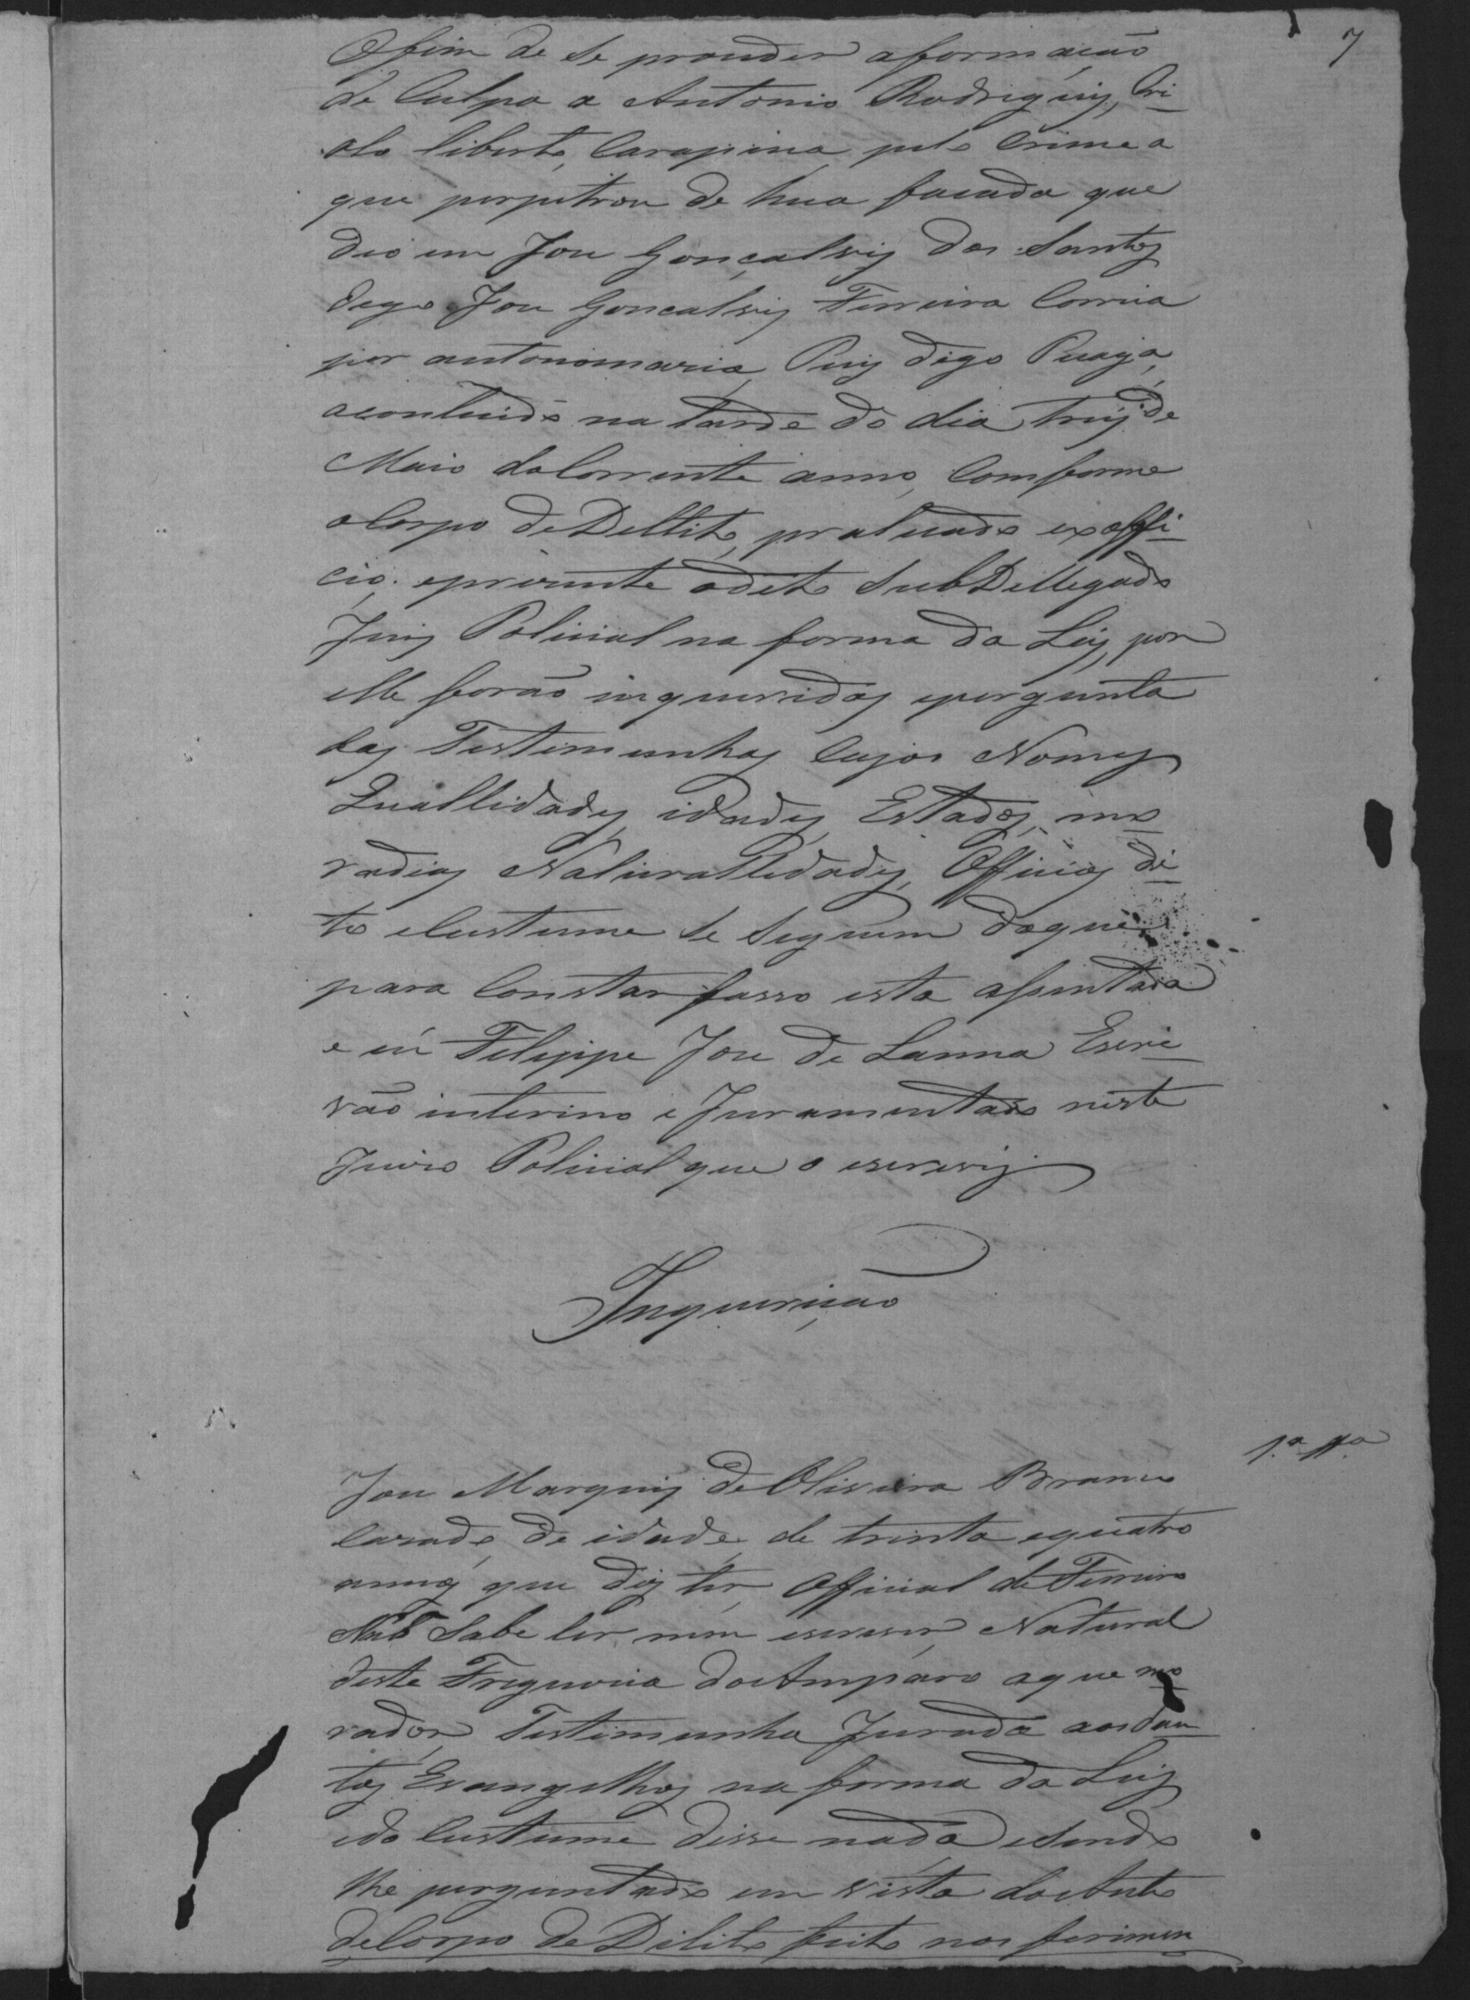 7
Afim de se prouder aformação
de Culpa a Antonio Rodriguis, Cri-
olo liberto, Carapina, pelo Crime a
que perpetrou de hua facada que
dio em Joze Gonçalvis dos Santos
digo Joze Gonçalvis Ferreira Correia
por antonomazia, Puij digo Puaja,
acontecido na tarde do dia trij de
Maio do Corrente anno, Comforme
o Corpo de Dellito, praticado exoffi-
cio, eprezente odito SubDellegado
Juiz Policial na forma da Leij, por
elle forão inqueridas epergunta
das Testimunhas Cujos Nomes
Quallidades, idades, Estados, mo-
radias Naturallidades, Officios di-
to eCustume se Seguem doque
para Constar fasso esta assentada
e eu Felippe Joze de Lanna Escri-
vão interino e Juramentado neste
Juizo Policial que o escrevij
Inquerição
1.ª tt.ª
Joze Marquis de Oliveira Branco
Cazado, de idade de trinta equatro
annos que diz ter, Official de Ferreiro
Não Sabe ler nem escrever, Natural
deste Freguezia do Amparo aque mo-
rador, Testimunha Jurada aos San-
tos Evangelhos na forma da Leij
edo Custume disse nada eSendo
lhe perguntado em vista do Auto
deCorpo de Dilito feito nos ferimen